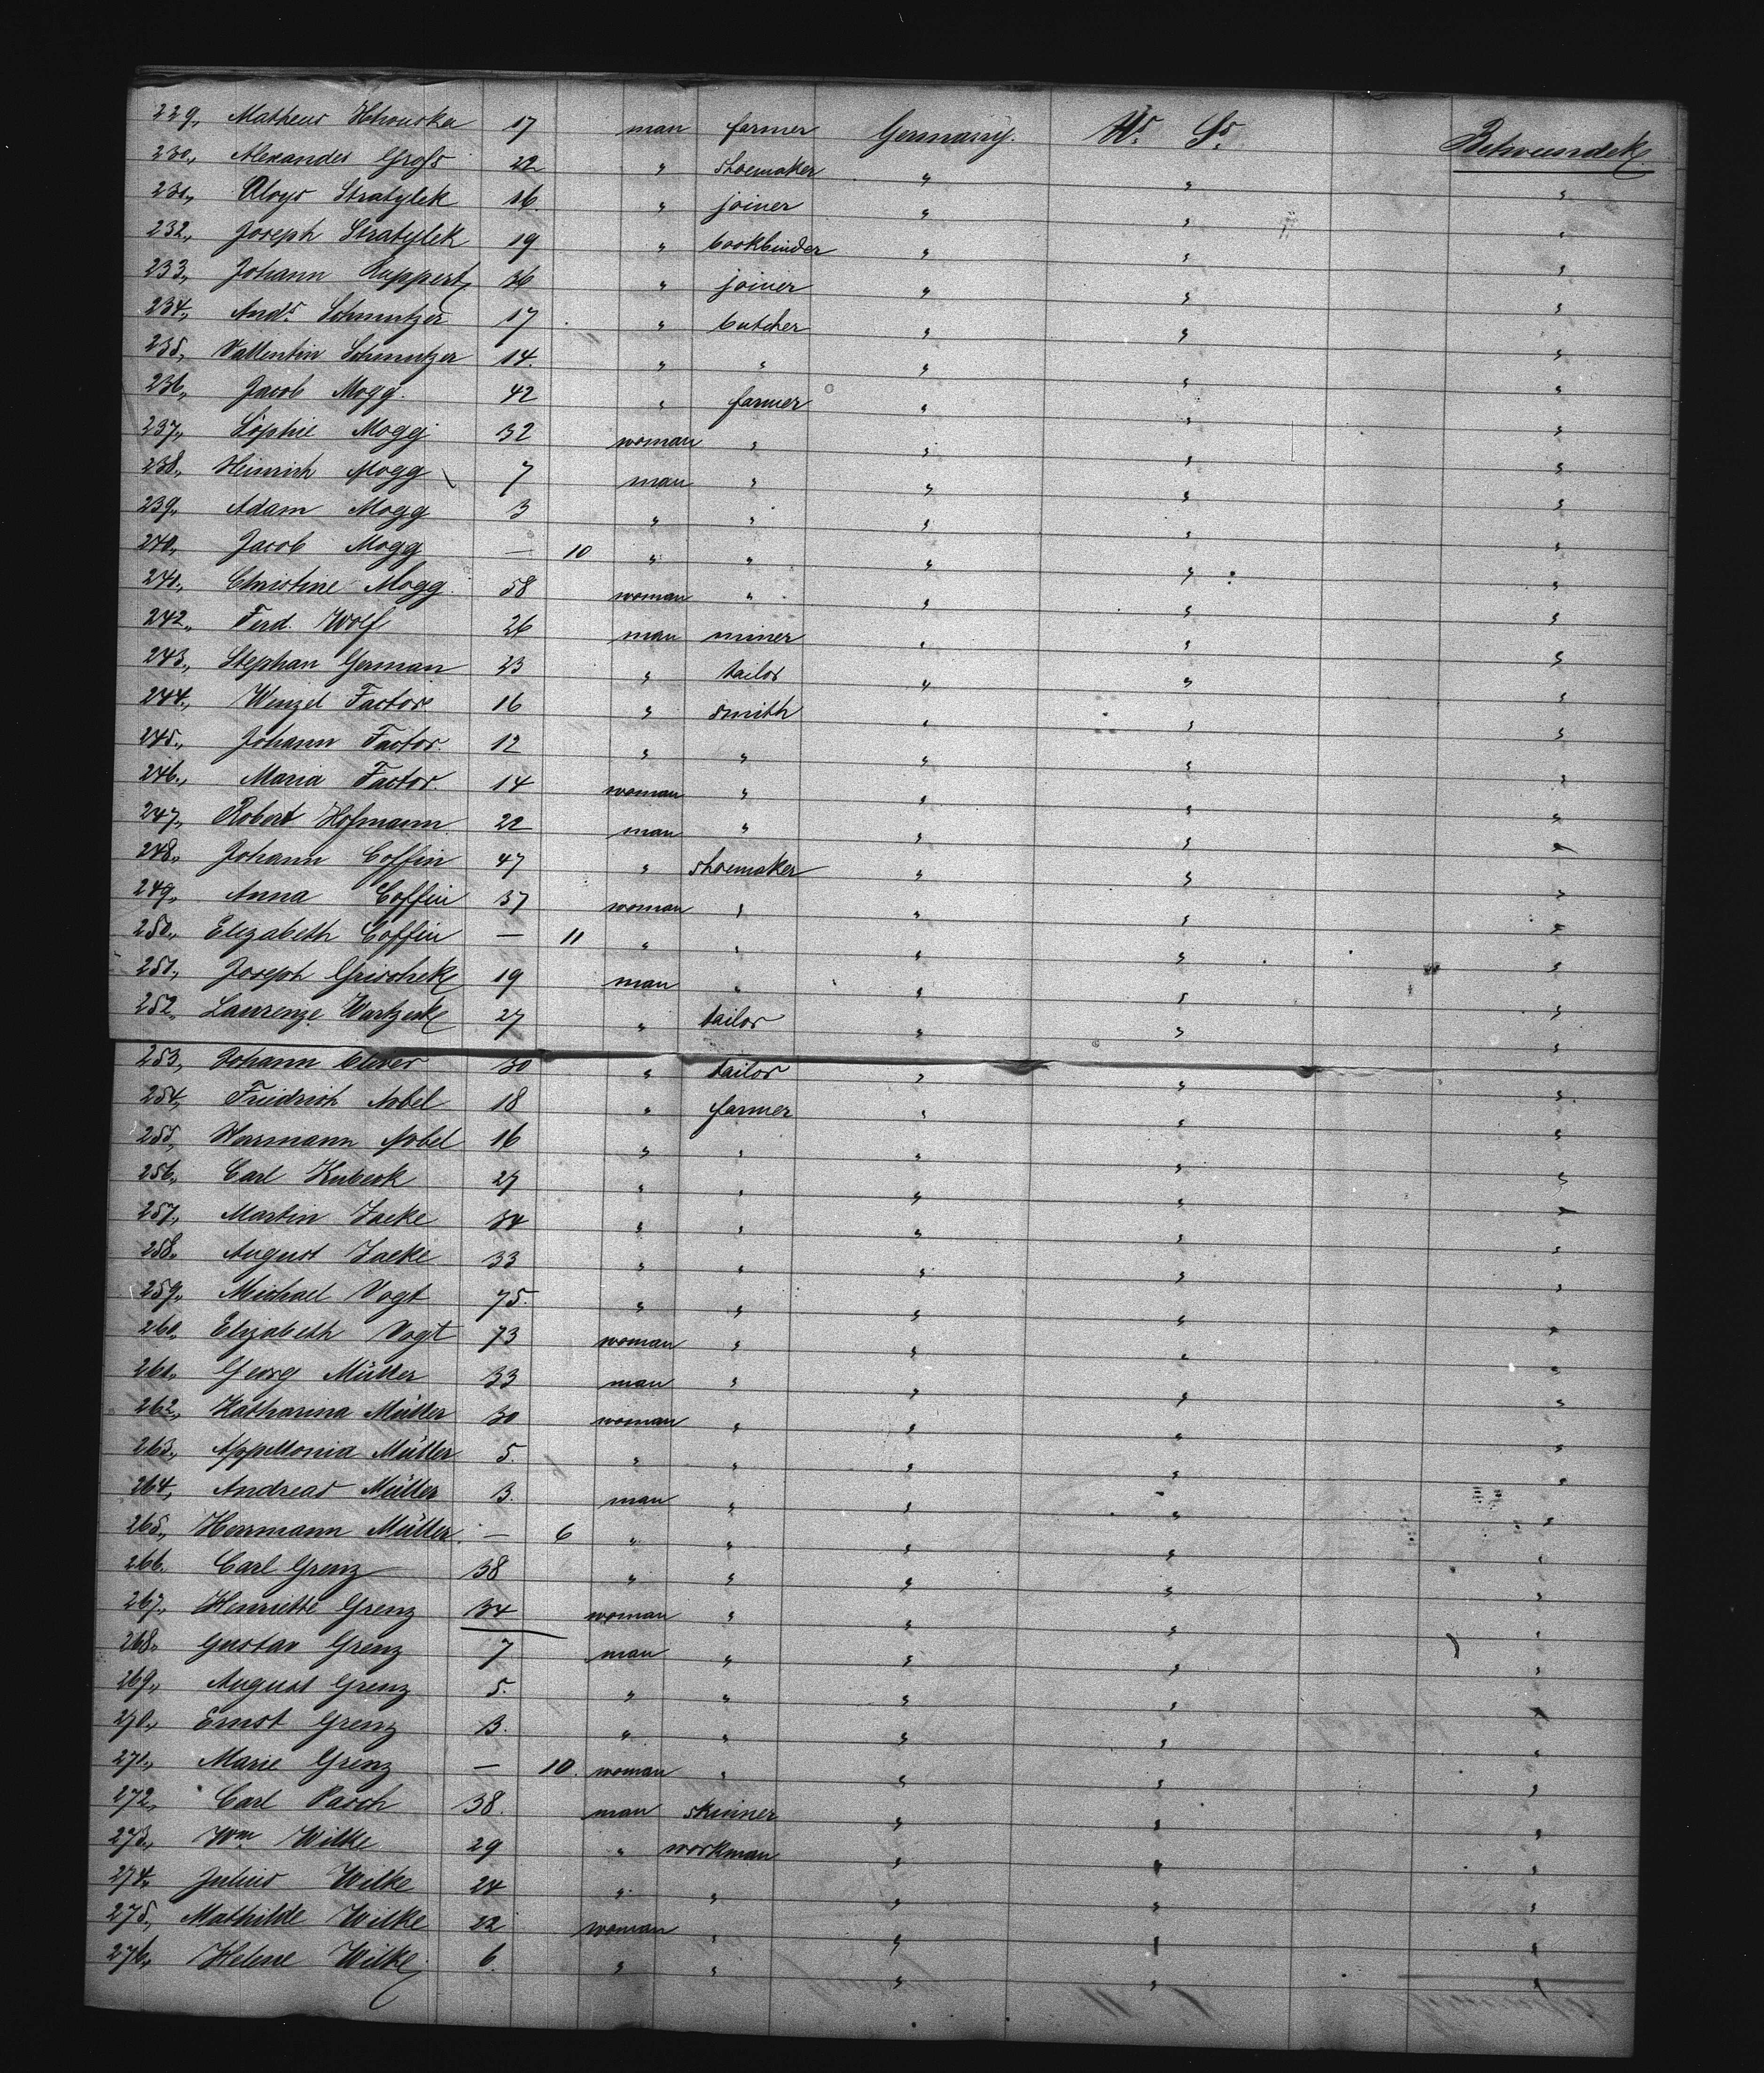 229., Matheus 17 man farmer Germany. Us. Ss. Betweendek
230., Alexander Gross 22 " shoemaker " " "
231., Aloys Stratylek 16. " joiner " " "
232., Joseph Stratylek 19 " bookbinder " " "
233., Johann Ruppert 36 " joiner " " "
234., Andr. Schmutzer 17 " butcher " " "
235., Vallentin Schmutzer 14. " " " " "
236., Jacob Mogg. 42 " farmer " " "
237., Sophie Mogg 32 woman " " " "
238., Heinrich Mogg 7 man " " " "
239., Adam Mogg 3 " " " " "
240., Jacob Mogg — 10 " " " " "
241., Christine Mogg. 58 woman " " " "
242., Ferd. Wolf 26 man miner " " "
243., Stephan German 23 " tailor " " "
244., Wenzel Factor 16 " smith " " "
245., Johann Factor. 12 " " " " "
246., Maria Factor. 14 woman " " " "
247., Robert Hofmann 22 man " " " "
248., Johann Coffin 47 " shoemaker " " "
249., Anna Coffin 37 woman " " " "
250., Elizabeth Coffin — 11 " " " " "
251., Joseph Grischek 19 man " " " "
252., Laurenze Wartzek 27 " tailor " " "
253., Johann 30 " tailor " " "
254., Friedrich Nobel 18 " farmer " " "
255., Herrmann Nobel 16 " " " " "
256., Carl Kubeck 27 " " " " "
257., Martin Jacke 34 " " " " "
258., August Jacke 33 " " " " "
259., Michael Vogt 75. " " " " "
260., Elizabeth Vogt 73 woman " " " "
261., Georg Müller 33 man " " " "
262., Katharina Müller 30 woman " " " "
263., Appellonia Müller 5. " " " " "
264., Andreas Müller 3. man " " " "
265., Herrmann Müller. — 6 " " " " "
266. Carl Grenz 38 " " " " "
267., Henriette Grenz 34 woman " " " "
268., Gustav Grenz 7 man " " " "
269., August Grenz 5. " " " " "
270., Ernst Grenz 3. " " " " "
271., Marie Grenz — 10. woman " " " "
272., Carl Pasch 38. man skinner " " "
273., Wm Wilke 29 " workman " " "
274., Julius Wilke 24 " " " " "
275., Mathilde Wilke 22 woman " " " "
276., Helene Wilke 6. " " " " "